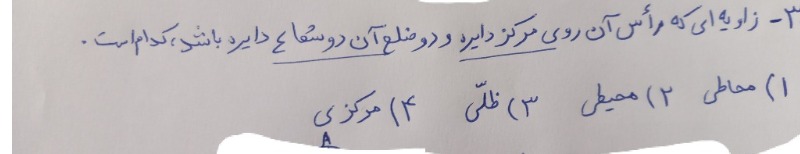 ۳- زاویه‌ای که رأس آن روی مرکز دایره و دو ضلع آن دو شعاع دایره باشد، کدام است.
۱) محاطی ۲) محیطی ۳) ظلّی ۴) مرکزی
A